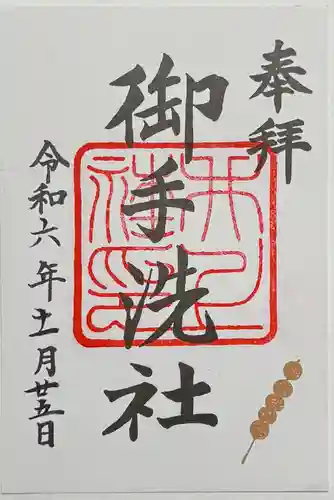 奉拝
御手洗社
令和六年十一月廿五日